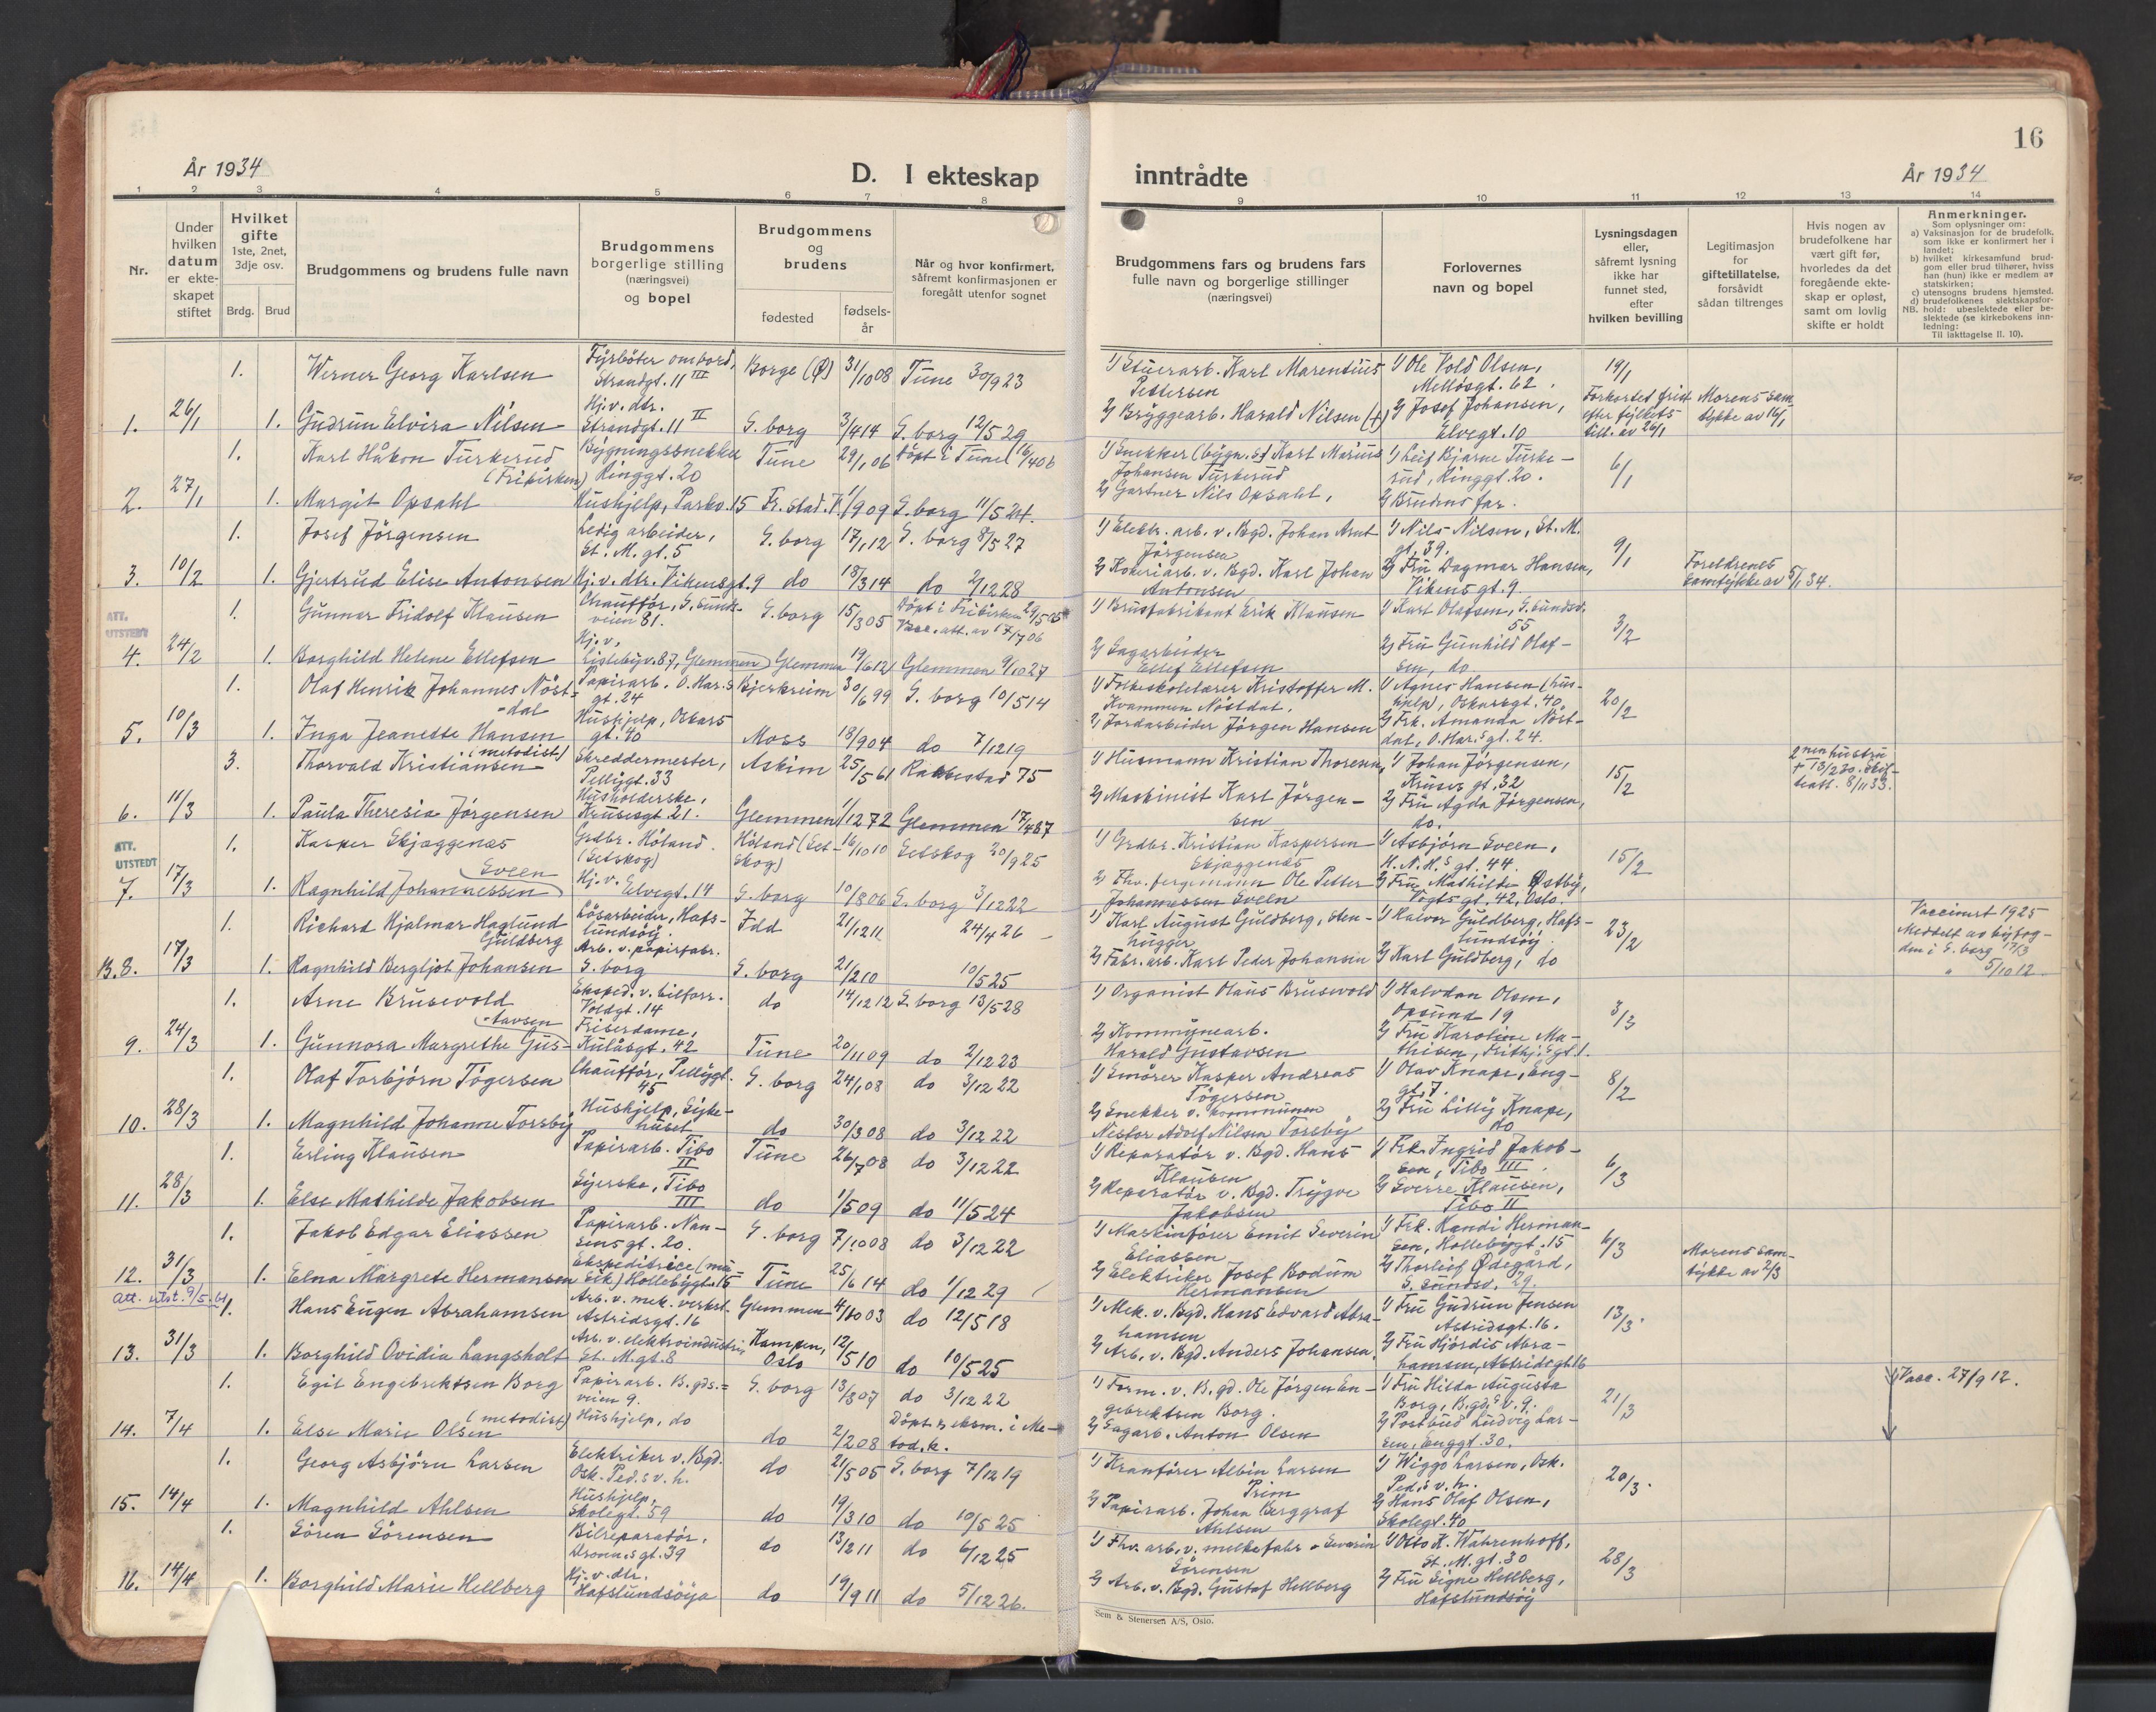 År 1934
D. I ekteskap
inntrådte
16
År 1934
1
2
3
4
5
6
7
8
9
10
11
12
13
14
Nr.
Under hvilken datum er ekteskapet stiftet
Hvilket gifte
1ste, 2net, 3dje osv.
Brdg.
Brud
Brudgommens og brudens fulle navn
Brudgommens borgerlige stilling
(næringsvei)
og bopel
Brudgommens
og
brudens
fødested
fødsels-
år
Når og hvor konfirmert,
såfremt konfirmasjonen er
foregått utenfor sognet
Brudgommens fars og brudens fars
fulle navn og borgerlige stillinger
(næringsvei)
Forlovernes
navn og bopel
Lysningsdagen
eller,
såfremt lysning
ikke har
funnet sted,
efter
hvilken bevilling
Legitimasjon
for
giftetillatelse,
forsåvidt
sådan tiltrenges
Hvis nogen av
brudefolkene har
vært gift før,
hvorledes da det
foregående ekte-
skap er opløst,
samt om lovlig
skifte er holdt
Anmerkninger.
Som oplysninger om:
a) Vaksinasjon for de brudefolk,
som ikke er konfirmert her i
landet;
b) hvilket kirkesamfund brud-
gom eller brud tilhører, hviss
han (hun) ikke er medlem av
statskirken;
c) utensogns brudens hjemsted.
d) brudefolkenes slektskapsfor-
NB. hold: ubeslektede eller be-
slektede (se kirkebokens inn-
ledning:
Til iakttagelse II. 10).
1. Werner Georg Karlsen Fyrbøter ombord, Strandgt. 11 III Borge (Ø) 31/10 08 Tune 30/9 23
1) Stuerarb. Karl Marentius Pettersen 1) Ole Vold Olsen, Melløsgt. 62. 19/1
1. 26/1 1. Gudrun Elvira Nilsen Hj.v. dtr. Strandgt. 11 II S. borg 3/4 14 S. borg 12/5 29
2) Bryggearb. Harald Nilsen (+) 2) Josef Johansen, Elvegt. 10 Forkortet frist efter fylkets till. av 26/1 Morens samtykke av 16/1
1. Karl Håkon Turkerud (Frikirken) Bygningssnekker Ringgt. 20 Tune 29/1 06 Døpt i Tune 16/4 06
1) Snekker (bygn.s) Karl Marius Johansen Turkerud 1) Leif Bjarne Turkerud, Ringgt. 20. 6/1
2. 27/1 1. Margit Opsahl Hushjelp, Parkv. 15 Fr.stad. V. 1/9 09 S. borg 11/5 24.
2) Gartner Nils Opsahl, 2) Brudens far.
1. Josef Jörgensen Ledig arbeider, St. M. gt. 5 S. borg 17/1 12 S. borg 8/5 27
1) Elektr. arb. v. Bgd. Johan Arnt Jörgensen 1) Nils Nilsen, St. M. gt. 39. 9/1
3. 10/2 1. Gjertrud Elise Antonsen Hj.v. dtr. Vikensgt. 9 do 18/3 14 do 2/12 28
2) Kokeriarb. v. Bgd. Karl Johan Antonsen 2) Fru Dagmar Hansen, Vikensgt. 9 Foreldrenes samtykke av 5/1 34.
ATT. UTSTEDT
1. Gunnar Fridolf Klausen Chauffør, G. sundsveien 81. S. borg 15/3 05 Døpt i Frikirken 29/5 05 Vacc. att. av 17/7 06
1) Brusfabrikant Erik Klausen 1) Karl Olafsen, G. sundsv. 55 3/2
4. 24/2 1. Borghild Helene Ellefsen Hj.v. Lislebyv. 87, Glemmen Glemmen 19/6 12 Glemmen 9/10 27
2) Sagarbeider Ellef Ellefsen 2) Fru Gunhild Olafsen, do.
1. Olaf Henrik Johannes Nöst-dal Papirarb. O. Har.s gt. 24 Bjerkreim 30/6 99 S. borg 10/5 14
1) Folkeskolelærer Kristoffer M. Kvammen Nöstdal. 1) Agnes Hansen (hushjelp), Oskarsgt. 40. 20/2
5. 10/3 1. Inga Jeanette Hansen Hushjelp, Oskars gt. 40 Moss 18/9 04 do 7/12 19
2) Jordarbeider Jörgen Hansen 2) Frk. Amanda Nöstdal, O. Har.s gt. 24.
3. Thorvald Kristiansen (metodist) Skreddermester, Pellygt. 33 Askim 25/5 61 Rakkestad 75
1) Husmann Kristian Thoresen, 1) Johan Jörgensen, Kruses gt. 32 15/2 2nen hustru + 13/2 30. Skifteatt. 8/11 33.
6. 11/3 1. Paula Theresia Jörgensen Husholderske, Krusesgt. 21. Glemmen 1/12 72 Glemmen 17/4 87
2) Maskinist Karl Jörgensen 2) Fru Agda Jörgensen, do.
ATT. UTSTEDT
1. Kasper Skjaggenæs Grdbr. Höland. (Setskog) Höland (Setskog) 16/10 10 Setskog 20/9 25
1) Grdbr. Kristian Kaspersen Skjaggenæs 1) Asbjörn Sveen, H. N. H.s gt. 44. 15/2
7. 17/3 1. Ragnhild Johannessen Sveen Hj.v. Elvegt. 14 S. borg 10/8 06 S. borg 3/12 22
2) Fhv. fergemann Ole Petter Johannessen Sveen 2) Fru Mathilde Østby, Vogts gt. 42, Oslo.
1. Richard Hjalmar Haglund Guldberg Løsarbeider, Hafslundsöy. Idd 21/12 11 24/4 26
1) Karl August Guldberg, stenhugger 1) Halvor Guldberg, Hafslundsöy. 23/2 Vaccinert 1925 Meddelt av byfogden i S. borg 17/3
B. 8. 17/3 1. Ragnhild Bergljot Johansen Arb. v. papirfabr. S. borg S. borg 21/2 10 10/5 25
2) Fabr. arb. Karl Peder Johansen 2) Karl Guldberg, do " 5/10 12
1. Arne Brusevold Eksped. v. bilforr. Voldgt. 14 do 14/12 12 S. borg 13/5 28
1) Organist Olaus Brusevold 1) Halvdan Olsen, Opsund 19 3/3
9. 24/3 1. Gunnora Margrethe Gus-tavsen Friserdame, Kulåsgt. 42 Tune 20/11 09 do 2/12 23
2) Kommunearb. Harald Gustavsen 2) Fru Karoline Mathisen, Frithj.s gt. 1.
1. Olaf Torbjörn Tögersen Chauffør, Pellygt. 45 S. borg 24/1 08 do 3/12 22
1) Smører Kasper Andreas Tögersen 1) Olav Knape, Enggt. 7. 8/2
10. 28/3 1. Magnhild Johanne Torsby Hushjelp, Sykehuset do 30/3 08 do 3/12 22
2) Snekker v. kommunen Nestor Adolf Nilsen Torsby 2) Fru Lilly Knape, do
1. Erling Klausen Papirarb. Tibo II Tune 26/7 08 do 3/12 22
1) Reparatör v. Bgd. Hans Klausen 1) Frk. Ingrid Jakobsen, Tibo III. 6/3
11. 28/3 1. Else Mathilde Jakobsen Syerske, Tibo III do 1/5 09 do 11/5 24
2) Reparatör v. Bgd. Trygve Jakobsen 2) Sverre Klausen, Tibo II
1. Jakob Edgar Eliassen Papirarb. Nansensgt. 20. S. borg 7/10 08 do 3/12 22
1) Maskinförer Emil Severin Eliassen 1) Frk. Randi Hermansen, Hollebygt. 15 6/3 Morens samtykke av 2/3
12. 31/3 1. Elna Margrete Hermansen Ekspeditrice (musik) Hollebygt. 15 Tune 25/6 14 do 1/12 29
2) Elektriker Josef Bodum Hermansen 2) Thorleif Ødegård, S. sundsv. 29.
att. utst. 9/5.61
1. Hans Eugen Abrahamsen Arb. v. mek. verkst. Astridsgt. 16 Glemmen 4/10 03 do 12/5 18
1) Mek. v. Bgd. Hans Edvard Abrahamsen 1) Fru Gudrun Jensen Astridsgt. 16. 13/3.
13. 31/3 1. Borghild Ovidia Langsholt Arb. v. elektroindustri St. M. gt. 8 Kampen, Oslo 12/5 10 do 10/5 25
2) Arb. v. Bgd. Anders Johansen, 2) Fru Hjördis Abrahamsen, Astridsgt. 16
1. Egil Engebrektsen Borg Papirarb. B. gds.veien 9. S. borg 13/8 07 do 3/12 22
1) Form. v. B. gd. Ole Jörgen Engebrektsen Borg. 1) Fru Hilda Augusta Borg, B. gds v. 9. 21/3 Vacc. 27/9 12.
14. 7/4 1. Else Marie Olsen (metodist) Hushjelp, do do 2/2 08 Döpt & eksm. i Metod. k.
2) Sagarb. Anton Olsen 2) Postbud Ludvig Larsen, Enggt. 30.
1. Georg Asbjörn Larsen Elektriker v. Bgd. Osk. Ped.s v. h. do 21/5 05 S. borg 7/12 19
1) Kranförer Albin Larsen Prim 1) Wiggo Larsen, Osk. Ped.s v. h. 20/3.
15. 14/4 1. Magnhild Ahlsen Hushjelp, Skolegt. 59 do 19/3 10 do 10/5 25
2) Papirarb. Johan Berggraf Ahlsen 2) Hans Olaf Olsen, Skolegt. 40
1. Sören Sörensen Bilreparatör, Dronn.s gt. 39 do 13/2 11 do 6/12 25
1) Fhv. arb. v. melkefabr. Severin Sörensen 1) Otto K. Wahrenhoff, St. M. gt. 30 28/3
16. 14/4 1. Borghild Marie Hellberg Hj.v. dtr. Hafslundsöya do 19/9 11 do 5/12 26.
2) Arb. v. Bgd. Gustaf Hellberg 2) Fru Signe Hellberg, Hafslundsöy
Sem & Stenersen A/S, Oslo.